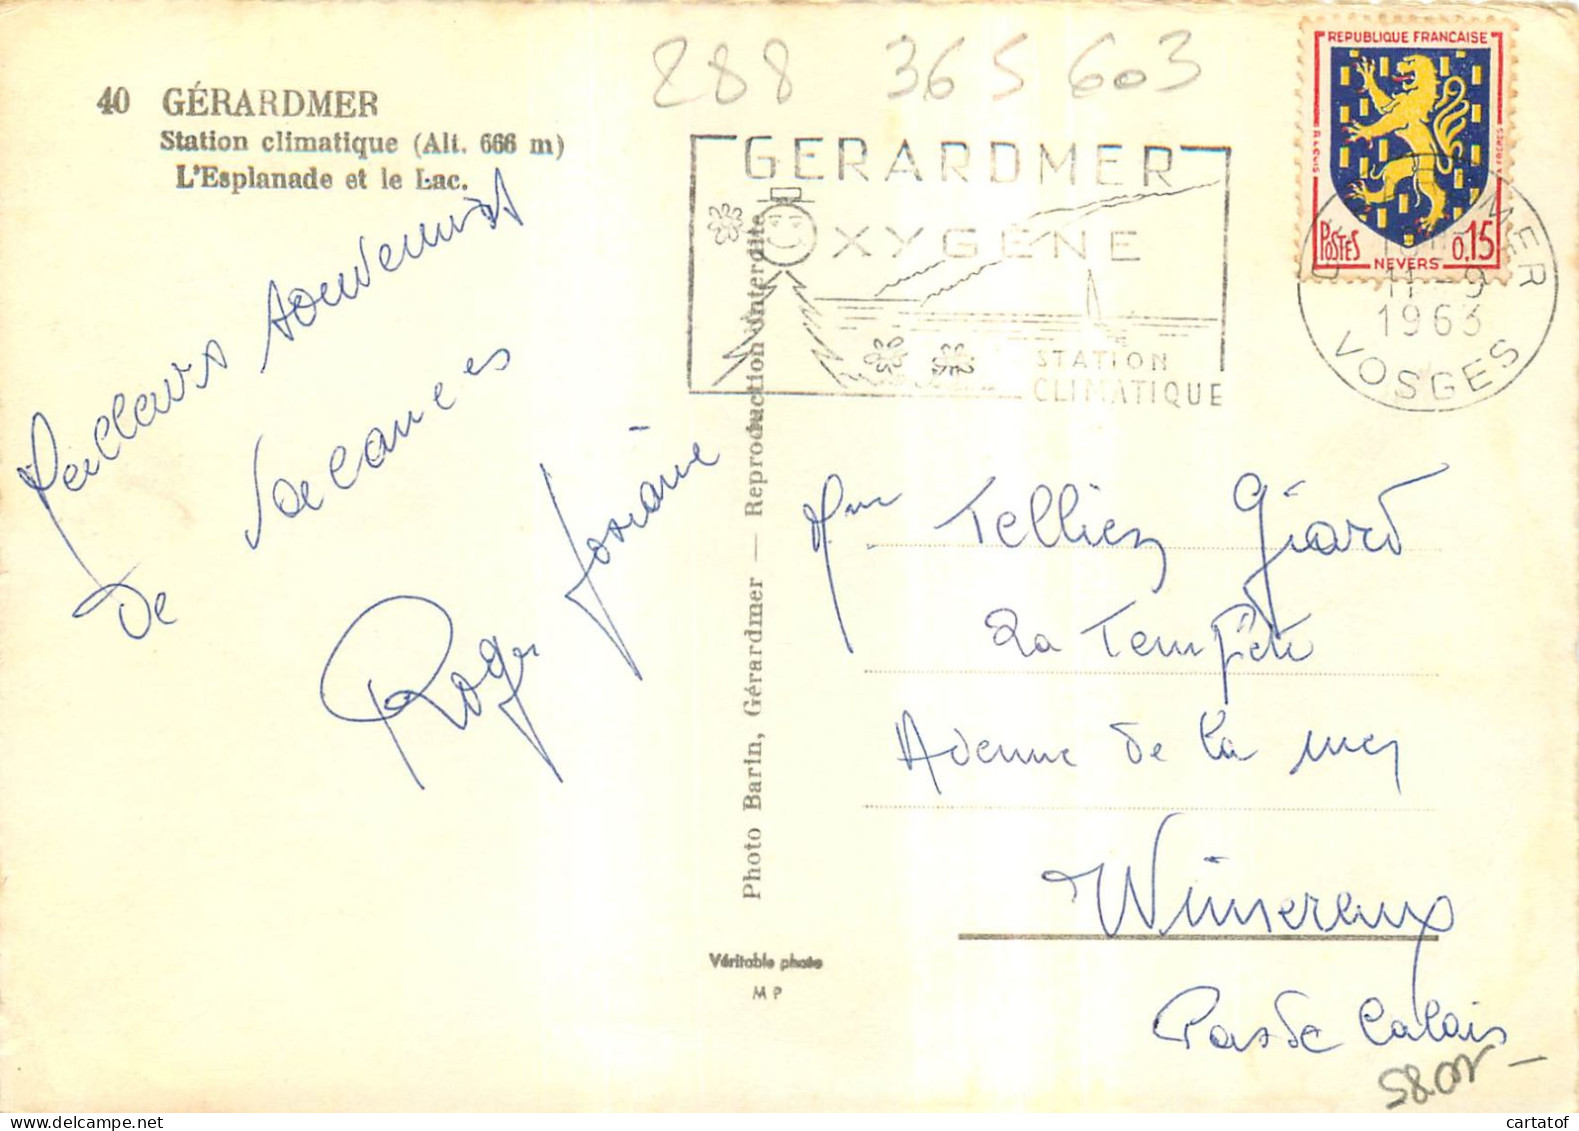 288 365 603
40 GÉRARDMER
Station climatique (Alt. 666 m)
L'Esplanade et le Lac.
Meilleurs souvenirs
de vacances
Roger Josiane
Photo Barin, Gérardmer — Reproduction interdite
Véritable photo
M P
GERARDMER
OXYGÈNE
STATION
CLIMATIQUE
REPUBLIQUE FRANÇAISE
POSTES
0,15
NEVERS
11-9
1963
VOSGES
Telliez Giard
La Tempête
Avenue de la mer
Wimereux
Pas de Calais